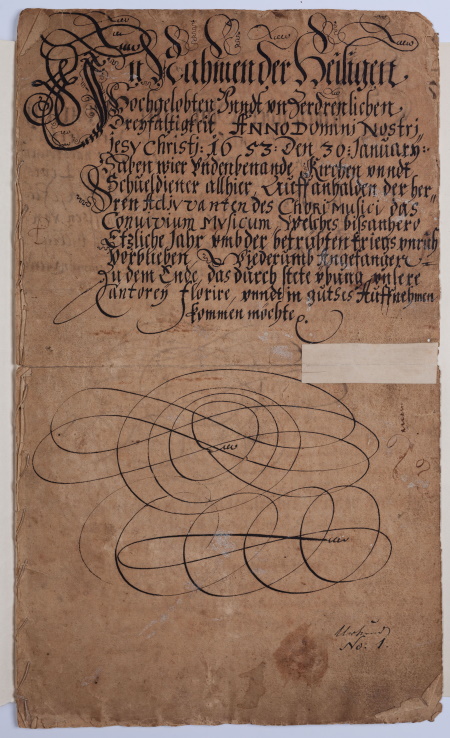 In Nahmen der Heiligen
Hochgelobten Vundt vnzerdrenlichen
Dreyfaltigkeit ANNO Domini Nostri
Jesv Christj: 1653: den 30: January:
Haben wier Vndenbenande Kirchen vnndt
Schüeldiener allhier, Auff anhalden der her-
ren Adjvvanten des Chori Musici das
Convivium Mvsicum Welches bissanhero
Etzliche Jahr vmb der betrübten Kriegs vnruh
Vorblieben Wiederumb Angefangen
Zu dem Ende, das durch stete vbung, vnsere
Cantorey florire, vnndt in gutses Auffnehmen
kommen möchte.
No: 1.